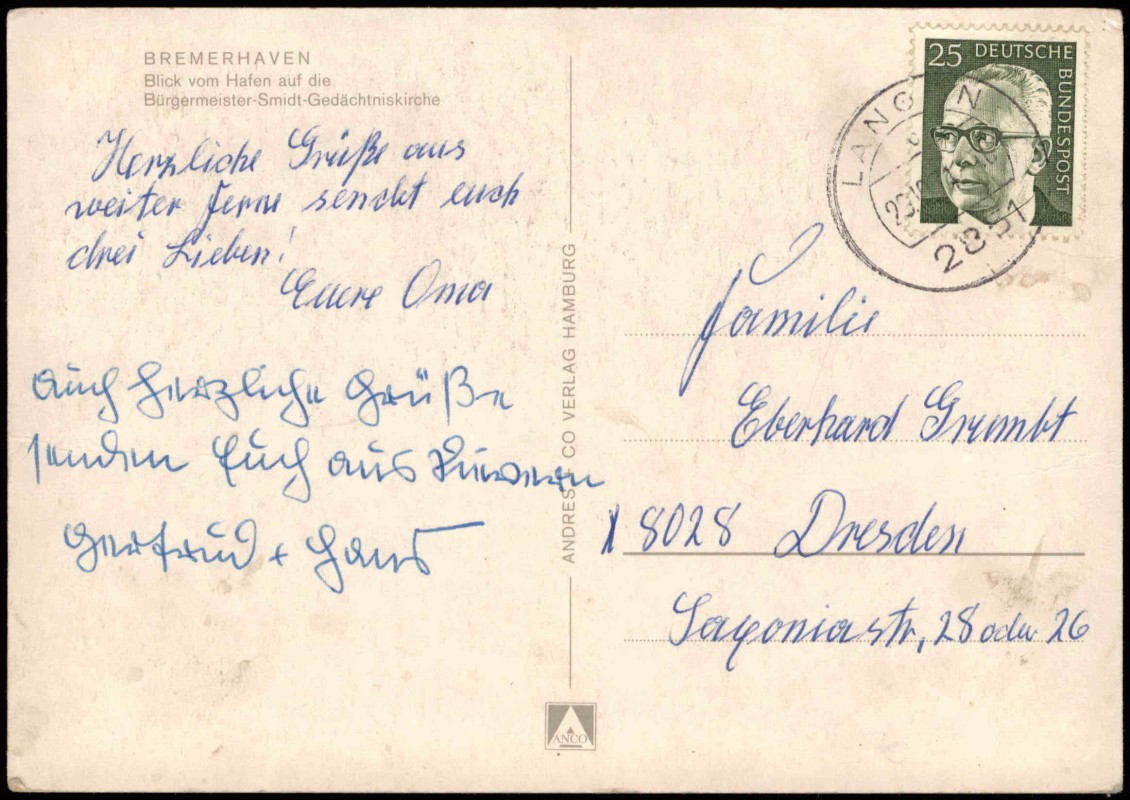 BREMERHAVEN
Blick vom Hafen auf die
Bürgermeister-Smidt-Gedächtniskirche
Herzliche Grüße aus
weiter Ferne sendet euch
drei Lieben!
Euere Oma
Auch herzliche Grüße
senden Euch aus
Gertrud + Hans
ANDRES + CO VERLAG HAMBURG
ANCO
25 DEUTSCHE
BUNDESPOST
LANGEN
2851
Familie
Eberhard Grumbt
X 8028 Dresden
Saxoniastr, 28 oder 26